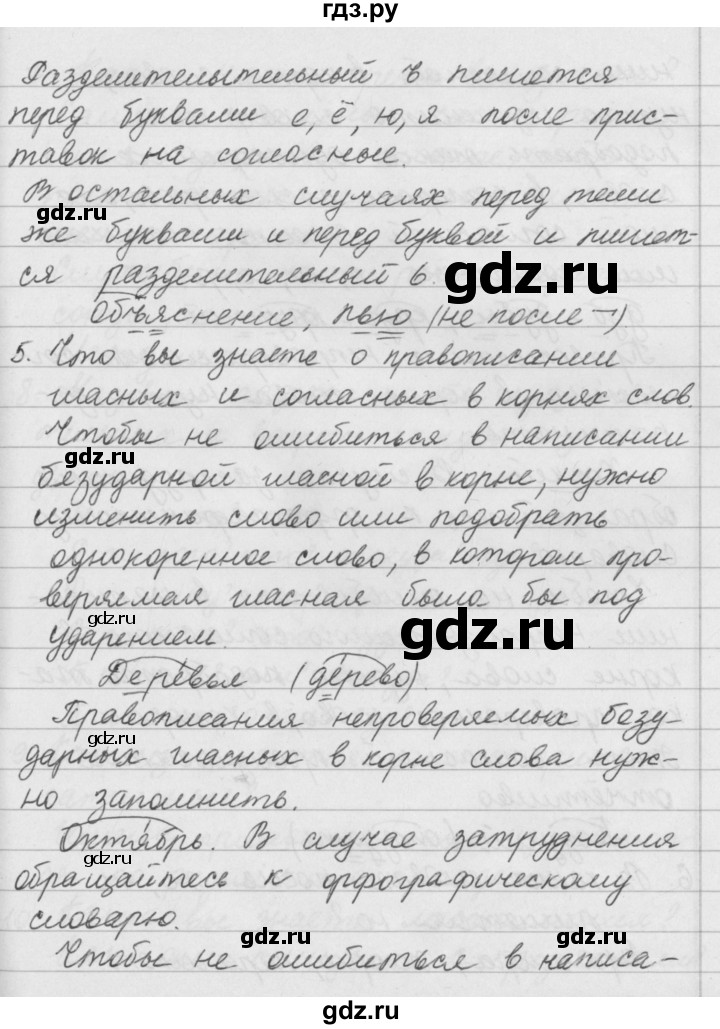 гдз.ру
Разделительтельный ъ пишется
перед буквами е, ё, ю, я после прис-
тавок на согласные.
В остальных случаях перед теми
же буквами и перед буквой и пишет-
ся разделительный ь.
Объяснение, пью (не после ¬)
5. Что вы знаете о правописании
гласных и согласных в корнях слов.
Чтобы не ошибиться в написании
безударной гласной в корне, нужно
изменить слово или подобрать
однокоренное слово, в котором про-
веряемая гласная была бы под
ударением.
Деревья (дерево).
Правописания непроверяемых безу-
дарных гласных в корне слова нуж-
но запомнить.
Октябрь. В случае затруднения
обращайтесь к орфографическому
словарю.
Чтобы не ошибиться в написа-
gdz.ru
gdz.ru
gdz.ru
gdz.ru
gdz.ru
gdz.ru
gdz.ru
gdz.ru
gdz.ru
gdz.ru
gdz.ru
gdz.ru
gdz.ru